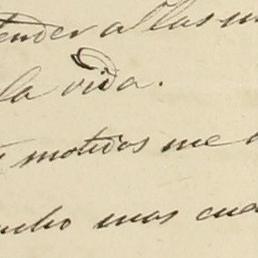 ender a las
la vida.
motivos me
mucho mas